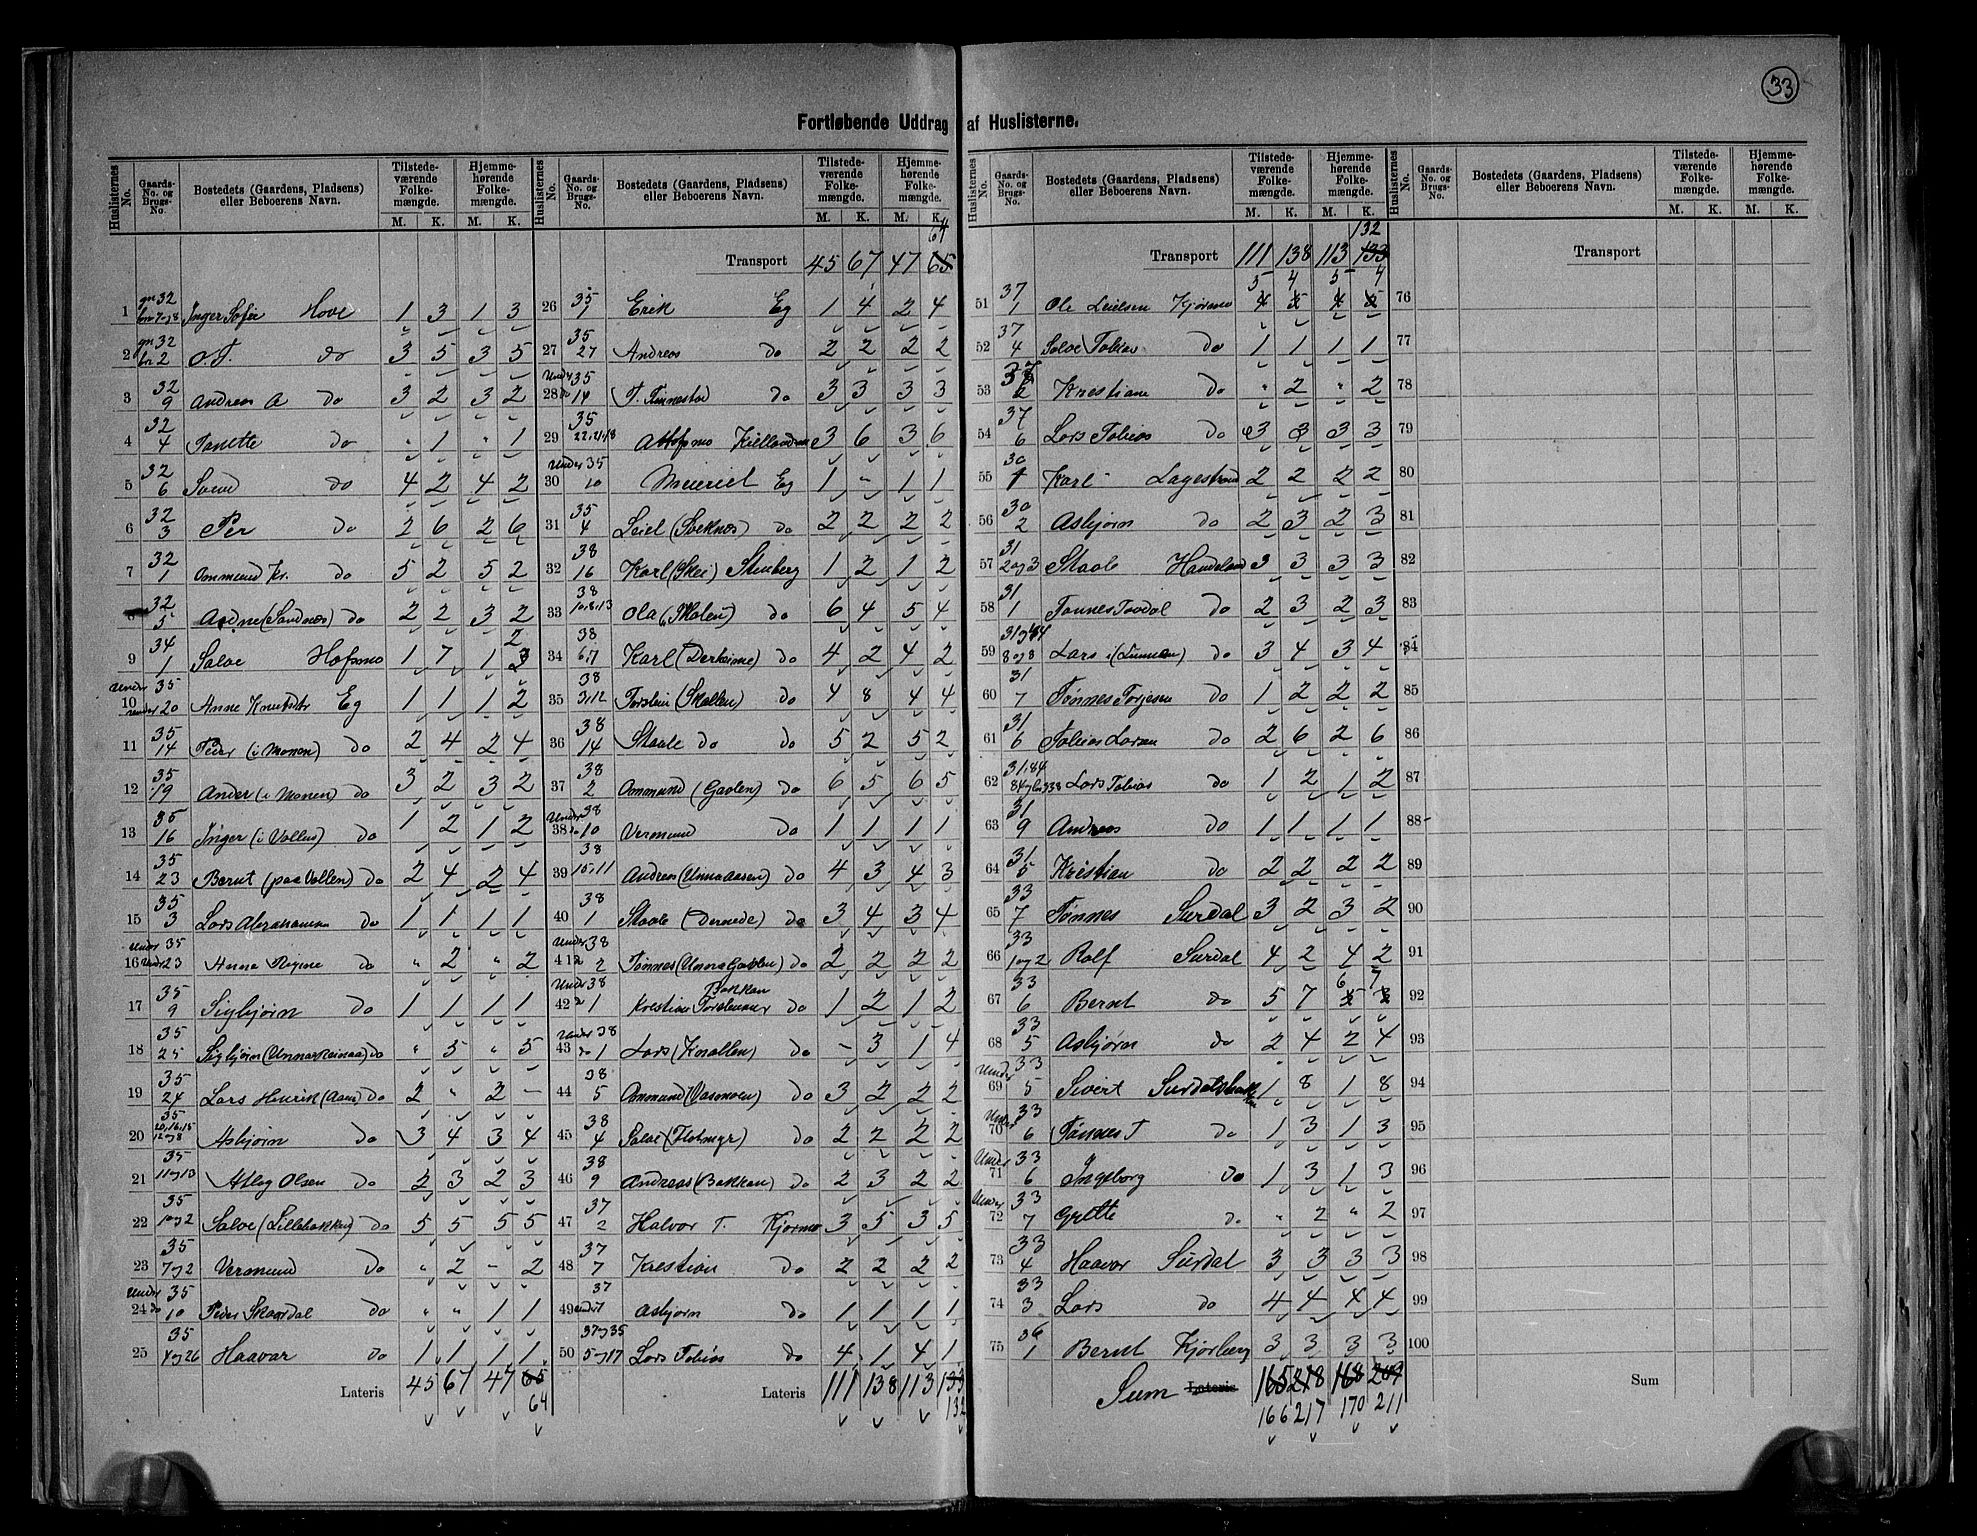 33
Fortløbende Uddrag af Huslisterne.
Huslisternes No. Gaards-No. og Brugs-No. Bostedets (Gaardens, Pladsens) eller Beboerens Navn. Tilstedeværende Folkemængde. M. K. Hjemmehørende Folkemængde. M. K.
1 gn 32 bn 7og8 Inger Sofie Hove 1 3 1 3
2 gn 32 bn 2 O. T. do 3 5 3 5
3 32 9 Andreas A do 3 2 3 2
4 32 4 Janette do " 1 " 1
5 32 6 do 4 2 4 2
6 32 3 Per do 2 6 2 6
7 32 1 Ommund Kr. do 5 2 5 2
8 32 5 (Sandnæs) do 2 2 3 2
9 34 1 Saloe Hofsmo 1 7 1 2
10 Under 35 20 Anne Knutsdtr Eg 1 1 1 2
11 35 14 Peder (i Monen) do 2 4 2 4
12 35 19 Ander (i Monen) do 3 2 3 2
13 35 16 Inger (i Vollen) do 1 2 1 2
14 35 23 Bernt (paa Vollen) do 2 4 2 4
15 35 3 Lars Abrahamsen do 1 1 1 1
16 Under 35 23 Anna Regine do " 2 " 2
17 35 9 Sigbjørn do 1 1 1 1
18 35 25 Sigbjørn do " 5 " 5
19 35 24 Lars Henrik (Aam) do 2 " 2 –
20 35 20,16,15 12og8 Asbjørn do 3 4 3 4
21 35 11og13 Atlag Olsen do 2 3 2 3
22 35 1og2 Saloe (Lillebakken) do 5 5 5 5
23 35 7og2 Vermund do " 2 – 2
24 Under do 35 10 Peder Skaardal do " " 1 1
25 35 4og26 Haavar do 1 1 1 1
Lateris 45 67 47 65 64
Transport 45 67 47 65 64
26 35 1 Erik Eg 1 4 2 4
27 35 27 Andreas do 2 2 2 2
28 Under do 35 14 T. Tinnestad do 3 3 3 3
29 35 Kiellandsmo 3 6 3 6
30 Under 35 10 Meieriet Eg 1 – 1 1
31 35 4 Leiel do 2 2 2 2
32 38 16 Karl (Skei) Stenberg 1 2 1 2
33 38 10,8,13 Ola (Molen) do 6 4 5 4
34 38 6,7 Karl do 4 2 4 2
35 38 3,12 Torstein (Skollen) do 4 8 4 4
36 38 14 Staale do do 5 2 5 2
37 38 2 Ommund (Gaolen) do 6 5 6 5
38 Under do 38 10 Vermund do 1 1 1 1
39 38 15,11 Andreas (Unnaaasen) do 4 3 4 3
40 38 1 Staale do 3 4 3 4
41 Under 38 2 Tønnes do 2 2 2 2
42 Under 38 1 Kristian Torsteinsen Bakkan do 1 2 1 2
43 Under do 38 1 Lars (Knollen) do – 3 1 4
44 38 5 Ommund do 3 2 2 2
45 38 4 Saloe (Flotmyr) do 2 2 2 2
46 38 9 Andreas (Bakkan) do 2 3 2 2
47 37 2 Halvor T. Kjørmo 3 5 3 5
48 37 7 Krestian do 2 2 2 2
49 under 37 7 Asbjørn do 1 1 1 1
50 37og35 5og17 Lars Tobias do 4 1 4 1
Lateris 111 138 113 133 132
Transport 111 138 113 133 132
51 37 1 Ole Leielsen Kjørmo 4 5 4 5 5 4 5 4
52 37 4 Saloe Tobias do 1 1 1 1
53 37 2 Krestiane do " 2 " 2
54 37 6 Lars Tobias do 3 3 3 3
55 30 1 Karl Lagestrand 2 2 2 2
56 30 2 Asbjørn do 2 3 2 3
57 31 2og3 Staale Handeland 3 3 3 3
58 31 1 Tønnes Tovdal do 2 3 2 3
59 31og84 8og8 Lars do 3 4 3 4
60 31 7 Tønnes Torjesen do 1 2 2 2
61 31 6 Tobias Larsen do 2 6 2 6
62 31,84 Lars Tobias do 1 2 1 2
63 31 9 Andreas do 1 1 1 1
64 31 5 Kristian do 2 2 2 2
65 33 7 Tønnes Surdal 3 2 3 2
66 33 1og2 Rolf Surdal 4 2 4 2
67 33 6 Bernt do 5 7 6 7
68 33 5 Asbjørn do 2 4 2 4
69 Under 33 5 Sivert Surdalsbakken 1 8 1 8
70 Under 33 6 Tønnes T do 1 3 1 3
71 Under 33 6 Ingeborg do 1 3 1 3
72 Under 33 7 Gritte do " 2 " 2
73 33 4 Haavar Surdal 3 3 3 3
74 33 3 Lars do 4 4 4 4
75 36 1 Bernt Kjørberg 3 3 3 3
Sum Lateris 165 218 168 209
166 217 170 211
Transport
76
77
78
79
80
81
82
83
84
85
86
87
88
89
90
91
92
93
94
95
96
97
98
99
100
Sum